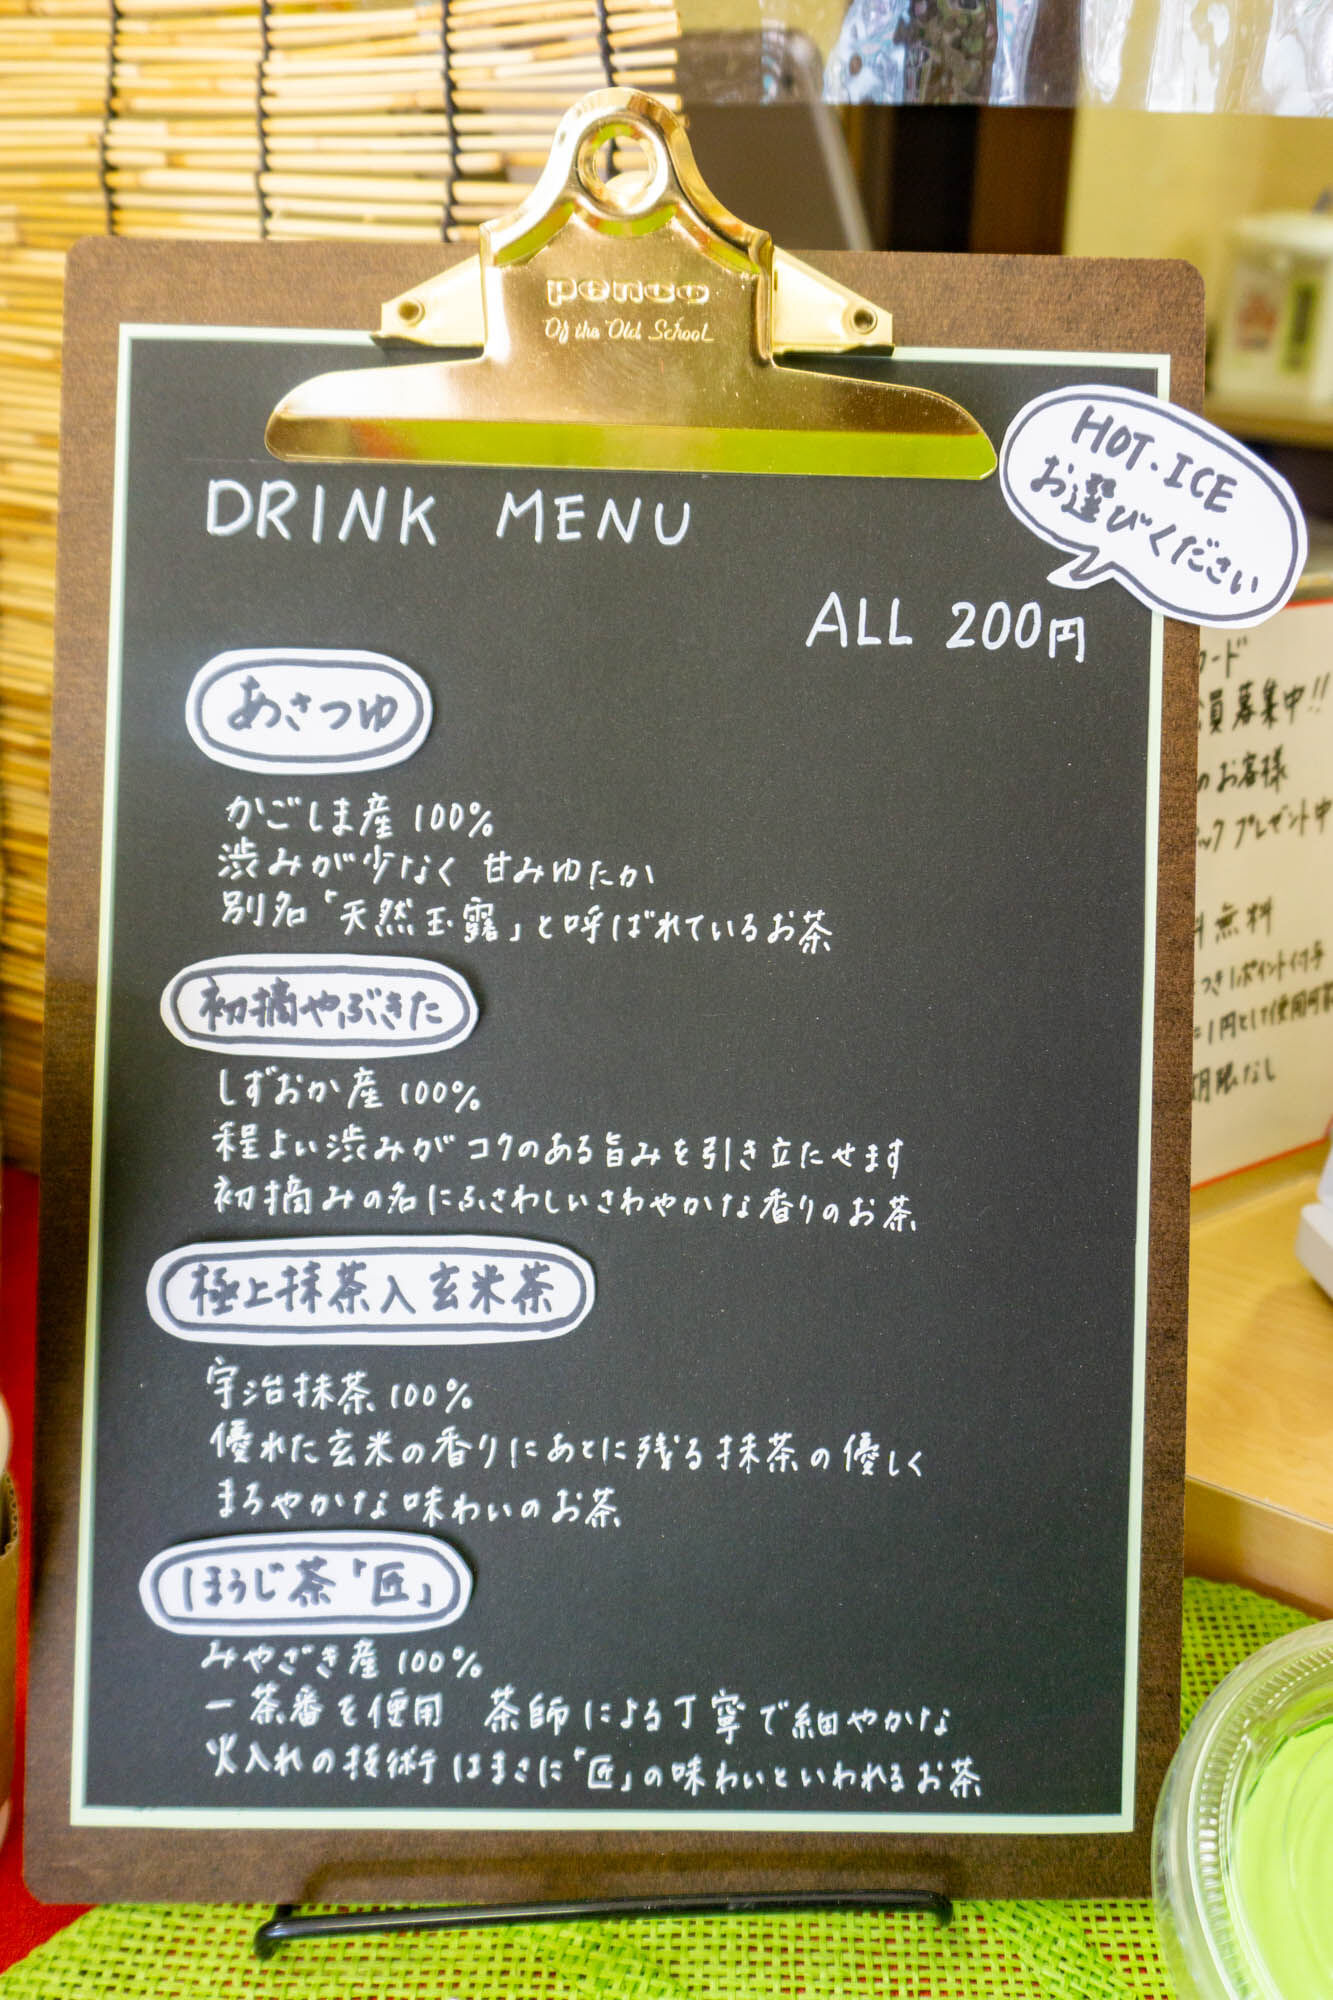 penco
Of the Old School
HOT・ICE
お選びください
DRINK MENU
ALL 200円
あさつゆ
かごしま産 100%
渋みが少なく 甘みゆたか
別名「天然玉露」と呼ばれているお茶
初摘やぶきた
しずおか産 100%
程よい渋みがコクのある旨みを引き立たせます
初摘みの名にふさわしいさわやかな香りのお茶
極上抹茶入玄米茶
宇治抹茶 100%
優れた玄米の香りにあとに残る抹茶の優しく
まろやかな味わいのお茶
ほうじ茶「匠」
みやざき産 100%
一茶番を使用 茶師による丁寧で細やかな
火入れの技術はまさに「匠」の味わいといわれるお茶
カード
員募集中!!
のお客様
ックプレゼント中
無料
つき1ポイント付与
=1円として使用可能
期限なし